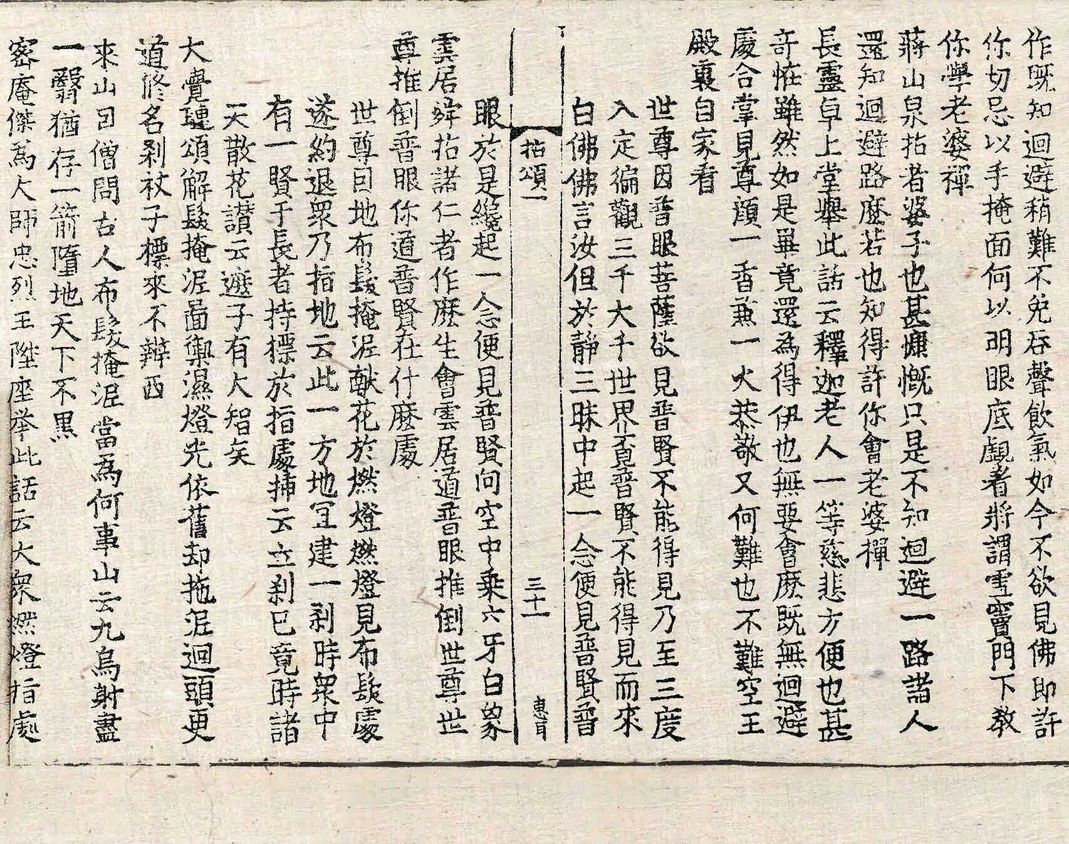 作既知迴避稍難不免吞聲飲氣如今不欲見佛即許
你切忌以手掩面何以明眼底覷着將謂雪竇門下教
你學老婆禪
蔣山泉拈者婆子也甚慷慨只是不知迴避一路諸人
還知迴避路麽若也知得許你會老婆禪
長靈卓上堂舉此話云釋迦老人一等慈悲方便也甚
奇恠雖然如是畢竟還為得伊也無要會麽既無迴避
處合掌見尊顔一香兼一火恭敬又何難也不難空王
殿裏自家看
世尊因普眼菩薩欲見普賢不能得見乃至三度
入定徧觀三千大千世界覓普賢不能得見而來
白佛佛言汝但於静三昧中起一念便見普賢普
拈頌一
三十一
眼於是纔起一念便見普賢向空中乗六牙白象
雲居舜拈諸仁者作麽生會雲居道普眼推倒世尊世
尊推倒普眼你道普賢在什麽處
世尊因地布髮掩泥獻花於燃燈燃燈見布髮處
遂約退衆乃指地云此一方地冝建一刹時衆中
有一賢于長者持標於指處揷云立刹已竟時諸
天散花讃云遮子有大智矣
大覺璉頌解髮掩泥面禦濕燈光依舊却拖泥迴頭更
道修名刹杖子標來不辨西
來山因僧問古人布髮掩泥當為何事山云九烏射盡
一翳猶存一箭墮地天下不黒
密庵傑為大師忠烈王陞座举此話云大衆燃燈指處